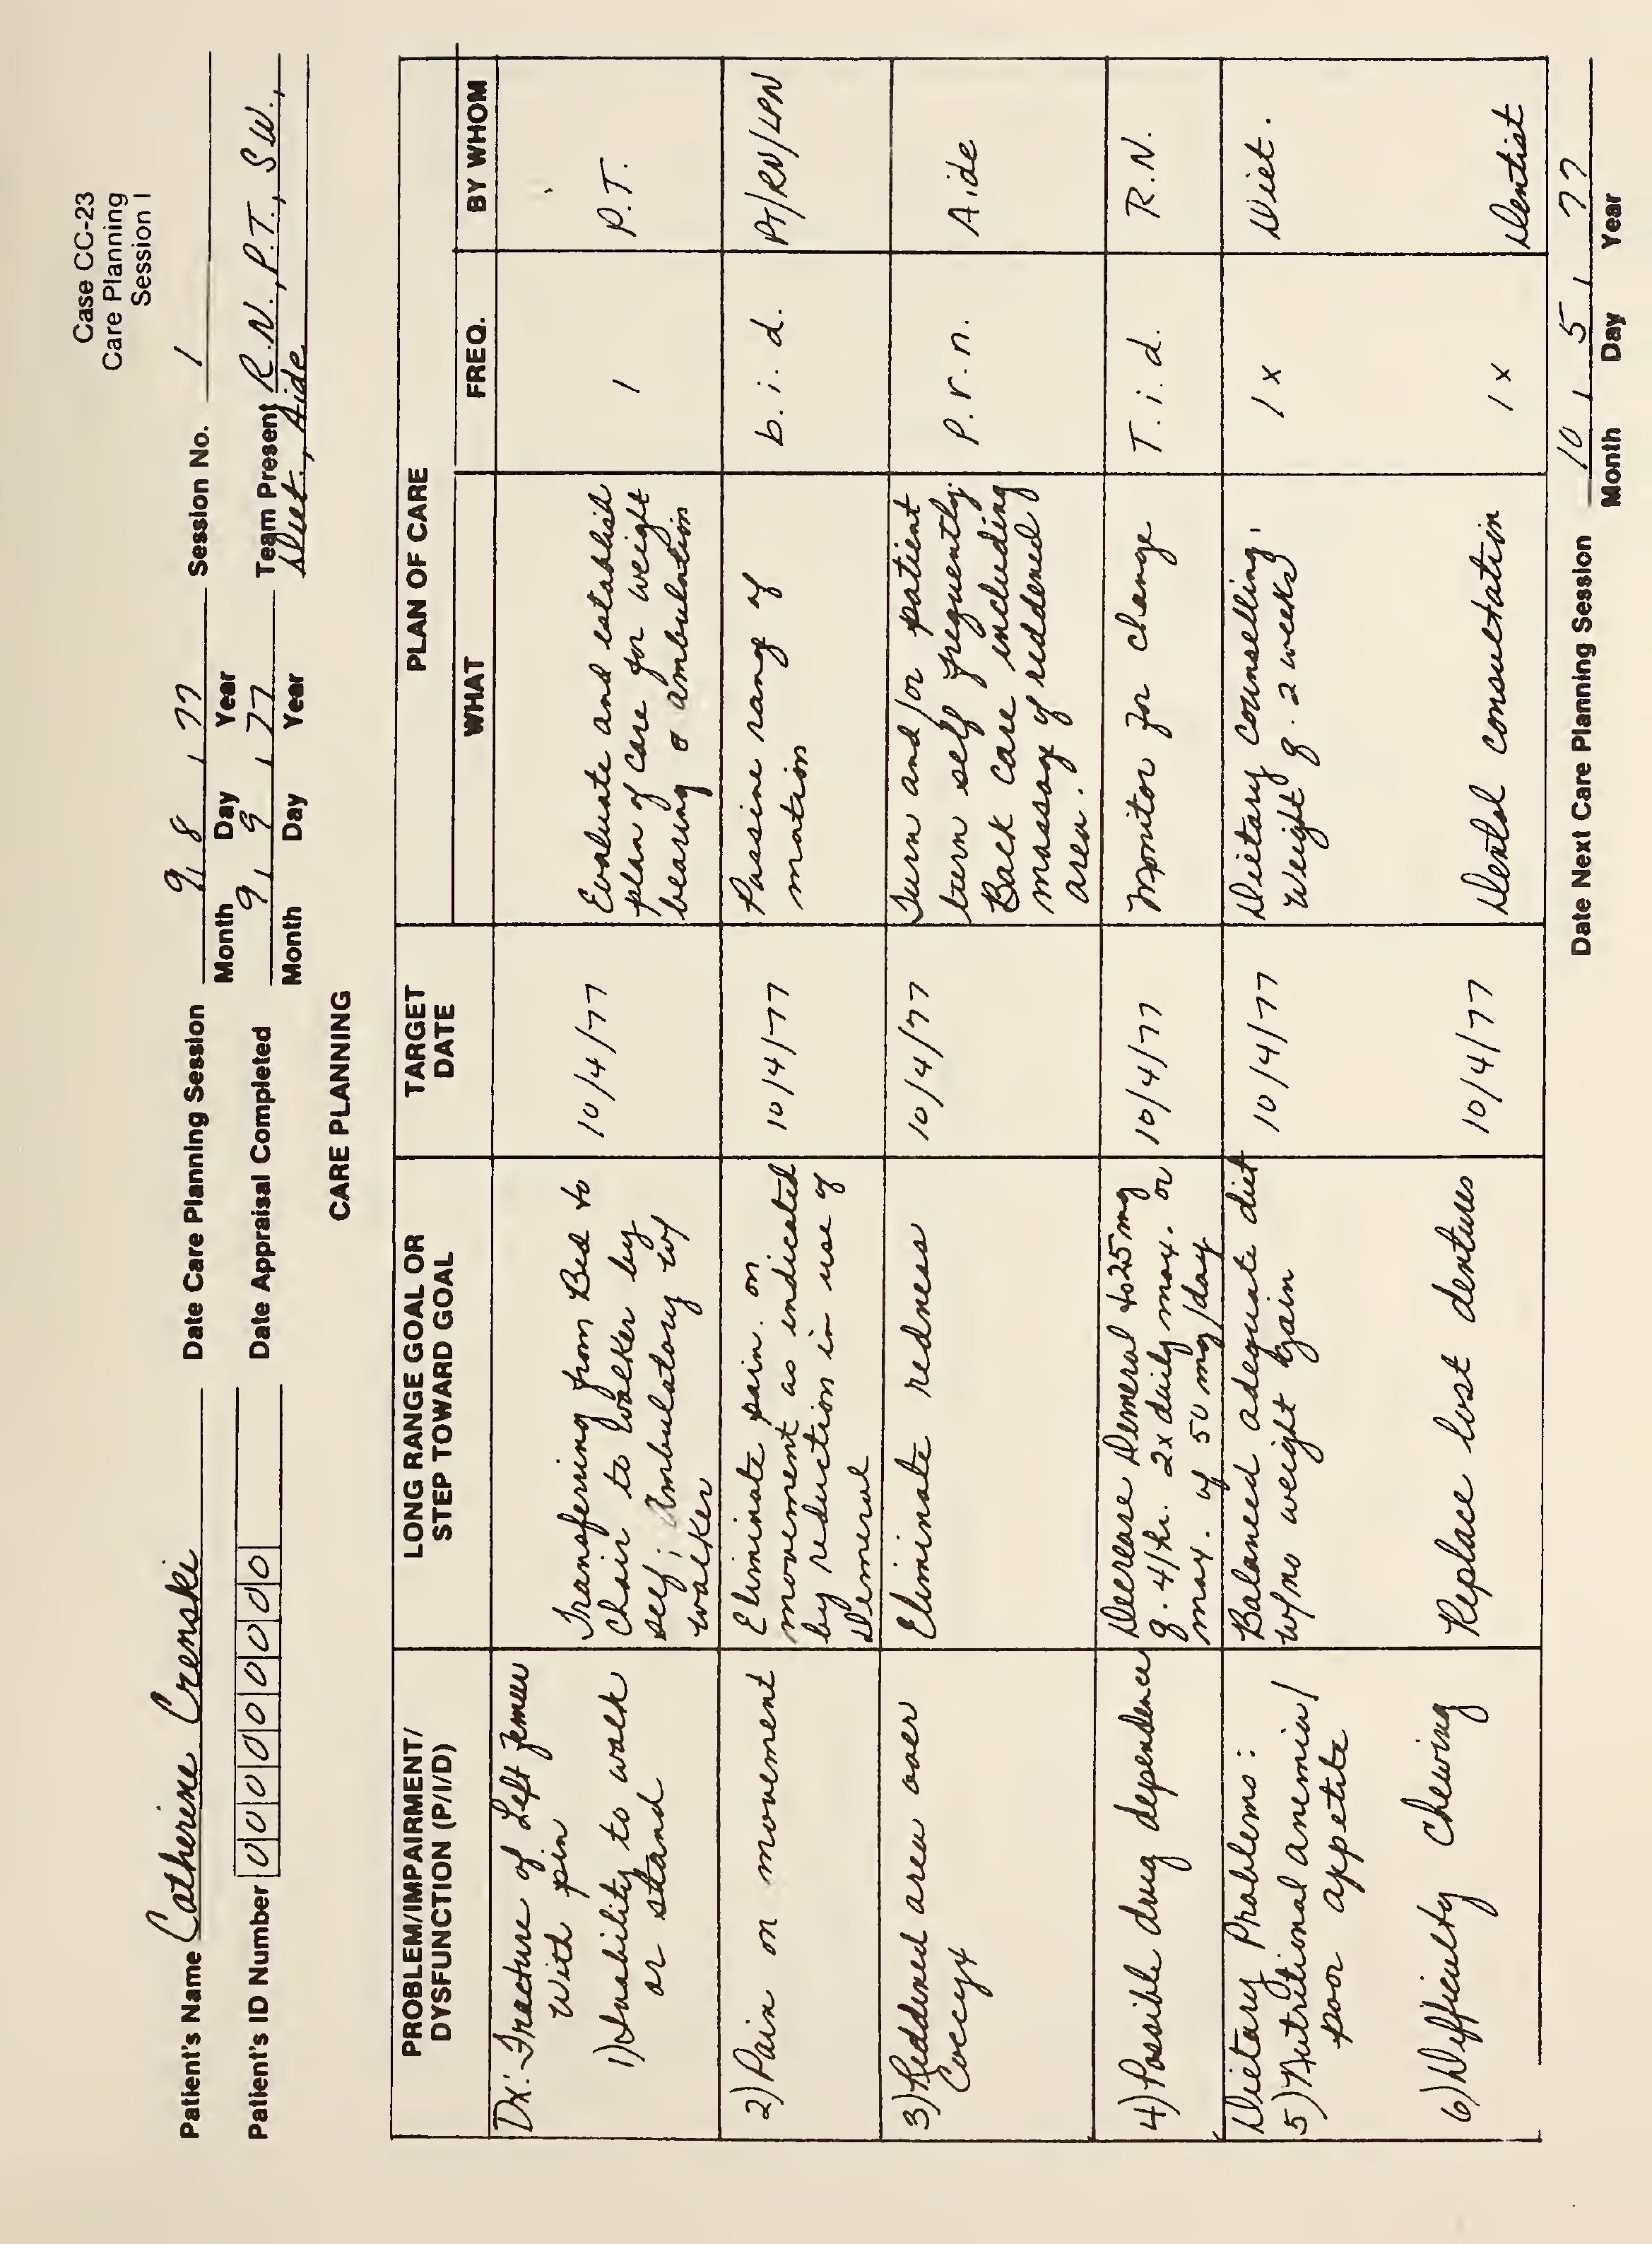 Case CC-23
Care Planning
Session I
Patient's Name Catherine Crenski Date Care Planning Session 9 / 8 / 77 Session No. 1
Month Day Year
Patient's ID Number 0 0 0 0 0 0 0 0 Date Appraisal Completed 9 / 9 / 77 Team Present R.N., P.T., S.W.,
Month Day Year Diet., Aide
CARE PLANNING
PROBLEM/IMPAIRMENT/
DYSFUNCTION (P/I/D)
LONG RANGE GOAL OR
STEP TOWARD GOAL
TARGET
DATE
PLAN OF CARE
WHAT
FREQ.
BY WHOM
Dx: Fracture of Left femur
with pin
1) Inability to walk
or stand
Transferring from Bed to
Chair to Walker by
self; Ambulatory w/
walker
10/4/77
Evaluate and establish
plan of care for weight
bearing & ambulation
1
P.T.
2) Pain on movement
Eliminate pain on
movement as indicated
by reduction in use of
Demerol
10/4/77
Passive rang of
motion
b.i.d.
PT/RN/LPN
3) Reddened area over
Coccyx
Eliminate redness
10/4/77
Turn and/or patient
turn self frequently.
Back care including
massage of reddened
area.
P.r.n.
Aide
4) Possible drug dependence
Decrease Demerol to 25 mg
q. 4/hr. 2x daily max. or
max. of 50 mg/day
10/4/77
Monitor for change
T.i.d.
R.N.
Dietary Problems:
5) Nutritional anemia/
poor appetite
Balanced adequate diet
w/no weight gain
10/4/77
Dietary counselling,
Weight q. 2 weeks
1x
Diet.
6) Difficulty Chewing
Replace lost dentures
10/4/77
Dental consultation
1x
Dentist
Date Next Care Planning Session 10 / 5 / 77
Month Day Year